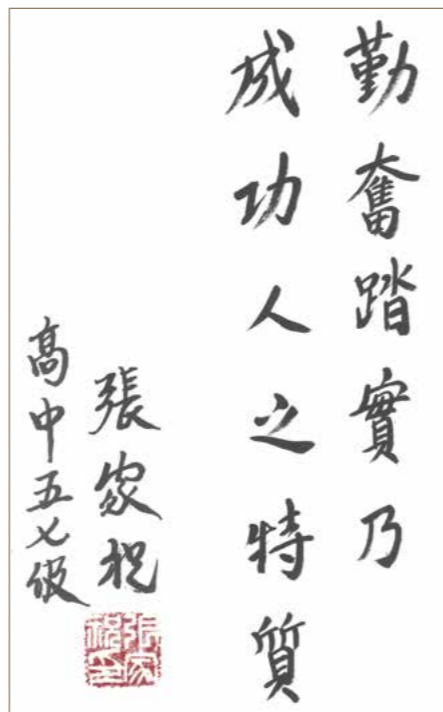 勤奮踏實乃
成功人之特質
張家祝
高中五七級
張家祝印